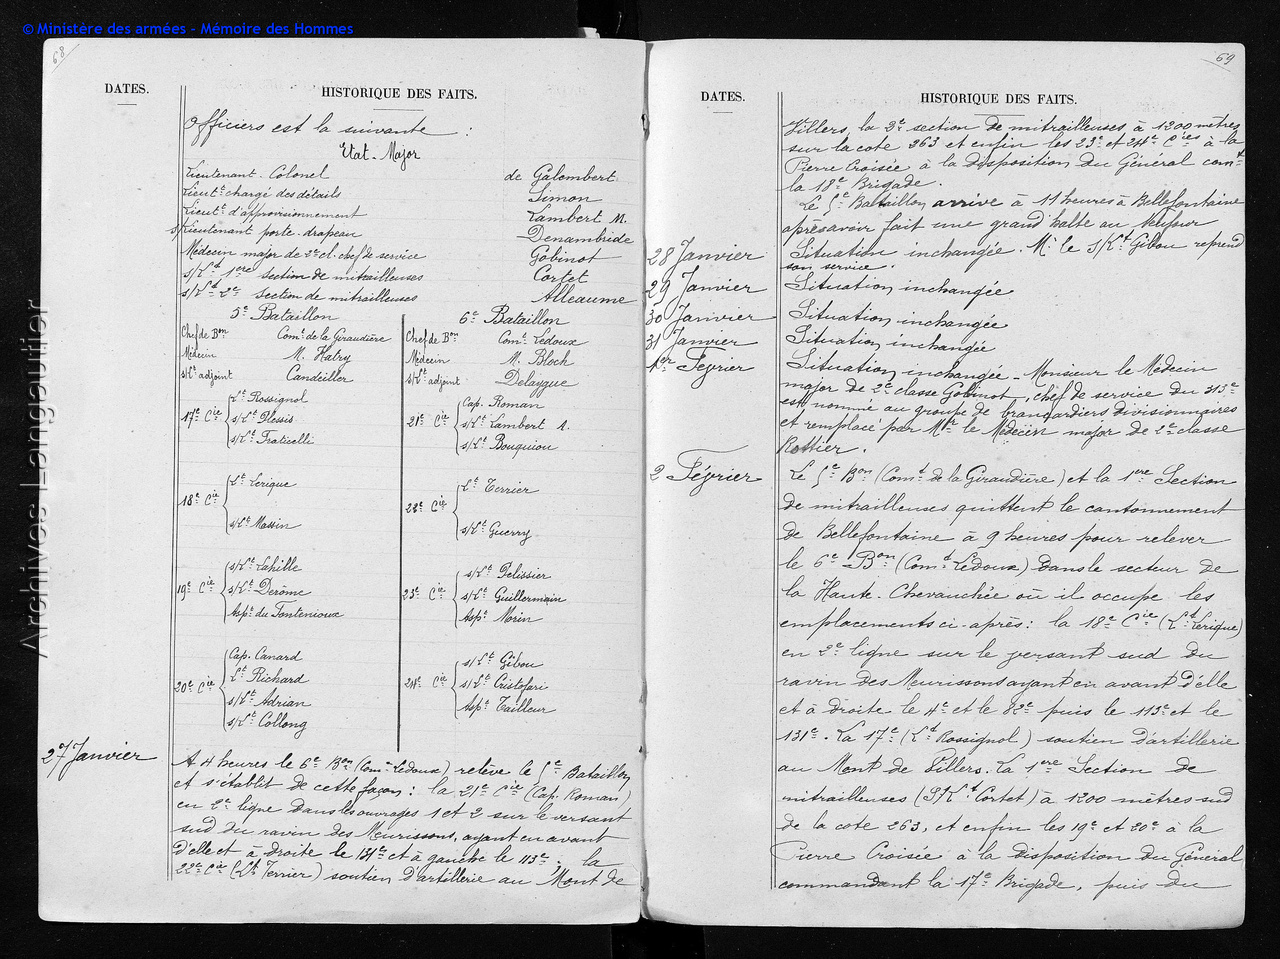 © Ministère des armées - Mémoire des Hommes
Archives Langautier
68
DATES.
HISTORIQUE DES FAITS.
Officiers est la suivante :
Etat-Major
Lieutenant-Colonel de Galembert
Lieutt chargé des détails Simon
Lieutt d'approvisionnement Lambert M.
s/Lieutenant porte-drapeau Denambride
Médecin major de 2e cl. chef de service Gobinot
s/Lt 1ère section de mitrailleuses Cortet
s/Lt 2e Section de mitrailleuses Alleaume
5e Bataillon
Chef de Bon Comt de la Giraudière
Médecin M. Hatry
s/Lt adjoint Candeiller
17e Cie
Lt Rossignol
s/Lt Plessis
s/Lt Fraticelli
18e Cie
Lt Lerique
s/Lt Massin
19e Cie
s/Lt Lahille
s/Lt Derôme
Aspt du Fontenioux
20e Cie
Cap. Canard
Lt Richard
s/Lt Adrian
s/Lt Collong
6e Bataillon
Chef de Bon Comt Ledoux
Médecin M. Bloch
s/Lt adjoint Delaygue
21e Cie
Cap. Roman
s/Lt Lambert A.
s/Lt Bouquiou
22e Cie
Lt Terrier
s/Lt Guerry
23e Cie
s/Lt Pelissier
s/Lt Guillermain
Aspt Morin
24e Cie
s/Lt Gibou
s/Lt Cristofari
Aspt Tailleur
27 Janvier
A 4 heures le 6e Bon (Comt Ledoux) relève le 5e Bataillon
et s'établit de cette façon : la 21e Cie (Cap. Roman)
en 2e ligne dans les ouvrages 1 et 2 sur le versant
sud du ravin des Meurissons, ayant en avant
d'elle et à droite le 131e et à gauche le 113e ; la
22e Cie (Lt Terrier) soutien d'artillerie au Mont de
69
DATES.
HISTORIQUE DES FAITS.
Villers, la 2e section de mitrailleuses à 1200 mètres
sur la cote 263 et enfin les 23e et 24e Cies à la
Pierre Croisée à la disposition du Général comt
la 18e Brigade.
Le 5e Bataillon arrive à 11 heures à Bellefontaine
après avoir fait une grand'halte au Neufour
28 Janvier Situation inchangée. Mr le s/Lt Gibou reprend
son service.
29 Janvier Situation inchangée
30 Janvier Situation inchangée
31 Janvier Situation inchangée
1er Février Situation inchangée - Monsieur le Médecin
major de 2e classe Gobinot, chef de service du 313e
est nommé au groupe de brancardiers divisionnaires
et remplacé par Mr le Médecin major de 2e classe
Rottier.
2 Février Le 5e Bon (Comt de la Giraudière) et la 1ère Section
de mitrailleuses quittent le cantonnement
de Bellefontaine à 9 heures pour relever
le 6e Bon (Comt Ledoux) dans le secteur de
la Haute-Chevauchée où il occupe les
emplacements ci-après : la 18e Cie (Lt Lerique)
en 2e ligne sur le versant sud du
ravin des Meurissons ayant en avant d'elle
et à droite le 4e et le 82e puis le 113e et le
131e. La 17e (Lt Rossignol) soutien d'artillerie
au Mont de Villers. La 1ère Section de
mitrailleuses (S/Lt Cortet) à 1200 mètres sud
de la cote 263, et enfin les 19e et 20e à la
Pierre Croisée à la disposition du Général
commandant la 17e Brigade, puis du